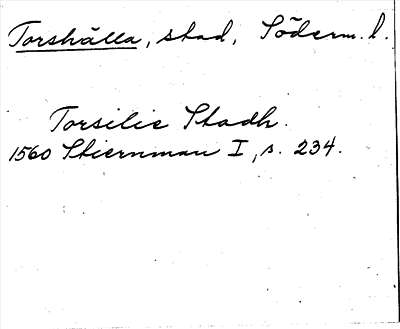 Torshälla, stad, Söderm. l.
Torsilie Stadh.
1560 Stiernman I, s. 234.